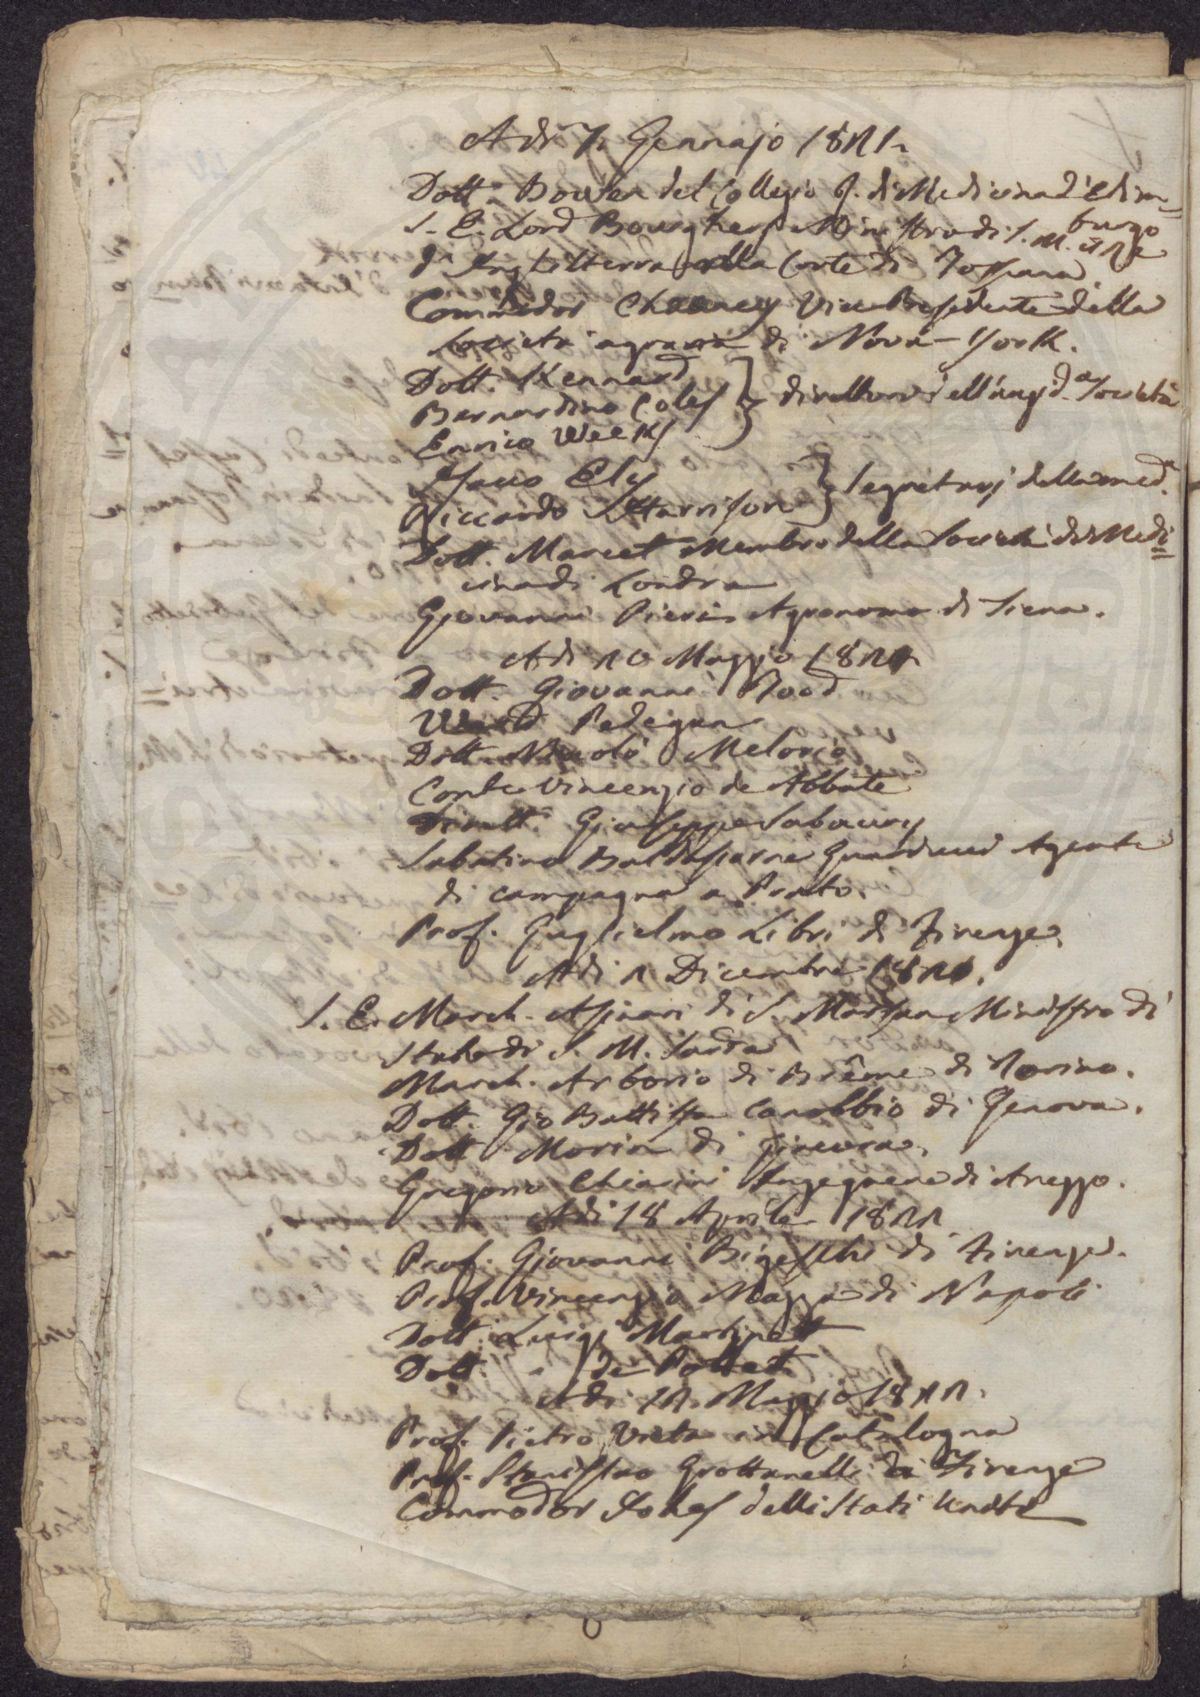 Adì 7. Gennajo 1821.
Dott. Bowler del Collegio R. di Medicina d'Edim=
burgo
S. E. Lord Bourghersh Ministro di S. M. il Re
d'Inghilterra alla Corte di Toscana
Commodor Chauncy Vice Presidente della
Società agraria di Nova-York.
Dott. Kennard
Bernardino Coles } direttori dell'ansid.a Società
Enrico Weeks
Isacco Ely
Riccardo Harrison } Segretarj della med.a
Dott. Marcet Membro della Società di Medi=
cina di Londra
Giovanni Pieri Agronomo di Siena.
Adì 20 Maggio 1821
Dott. Giovanni Rood
Ward
Dott. Niccolò Melorio
Conte Vincenzio de Abbate
Dirett. Giuseppe
Sabatino Baldassarre Guarducci Agente
di campagna a Prato.
Prof. Guglielmo Libri di Firenze.
Adì 2 Dicembre 1821.
S. E. March. Asinari di S. Marsan Ministro di
Stato di S. M. Sarda
March. Arborio di Brême di Torino.
Dott. Gio Battista Canobbio di Genova.
Dott. Morin di Ginevra.
Gregorio Chiarini Ingegnere di Arezzo.
Adì 18 Aprile 1822
Prof. Giovanni Bigeschi di Firenze.
Prof. Vincenzio Mazza di Napoli
Dott. Luigi Martinett
Dott. de Pottet
Adì 12. Maggio 1822.
Prof. Pietro Vieta in Catalogna
Prof. Stanislao Grottanelli di Firenze
Commodor delli Stati Uniti